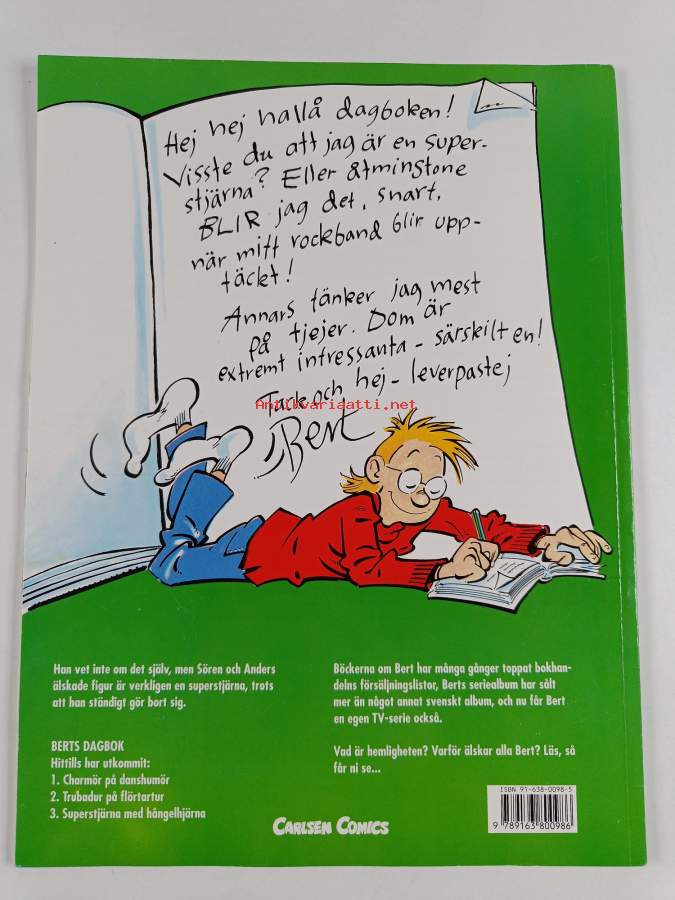 Hej hej hallå dagboken!
Visste du att jag är en super-
stjärna? Eller åtminstone
BLIR jag det, snart,
när mitt rockband blir upp-
täckt!
Annars tänker jag mest
på tjejer. Dom är
extremt intressanta - särskilt en!
Tack och hej - leverpastej
Antikvariaatti.net
Bert
Han vet inte om det själv, men Sören och Anders
älskade figur är verkligen en superstjärna, trots
att han ständigt gör bort sig.
BERTS DAGBOK
Hittills har utkommit:
1. Charmör på danshumör
2. Trubadur på flörtartur
3. Superstjärna med hångelhjärna
Böckerna om Bert har många gånger toppat bokhan-
delns försäljningslistor, Berts seriealbum har sålt
mer än något annat svenskt album, och nu får Bert
en egen TV-serie också.
Vad är hemligheten? Varför älskar alla Bert? Läs, så
får ni se...
CARLSEN COMICS
ISBN 91-638-0098-5
9 789163 800986